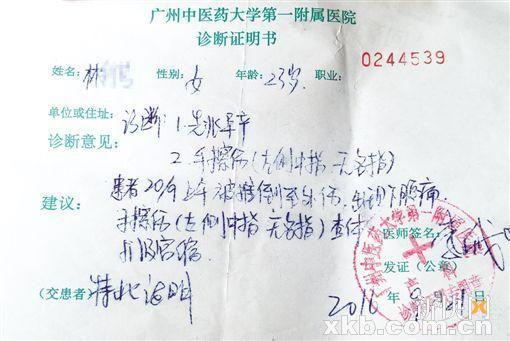 广州中医药大学第一附属医院
诊断证明书
0244539
姓名: 林 性别: 女 年龄: 23岁 职业:
单位或住址:
诊断意见: 诊断: 1. 先兆早产
2. 手擦伤(左侧中指 无名指)
建议: 患者20/9上午被推倒至外伤, 出现下腹痛
手擦伤(左侧中指 无名指) 查体
宫缩
医师签名:
发证(公章)
(交患者) 特此证明
2016年9月21日
广州中医药大学第一附属医院
产科
诊断证明专用章
新快网
xkb.com.cn